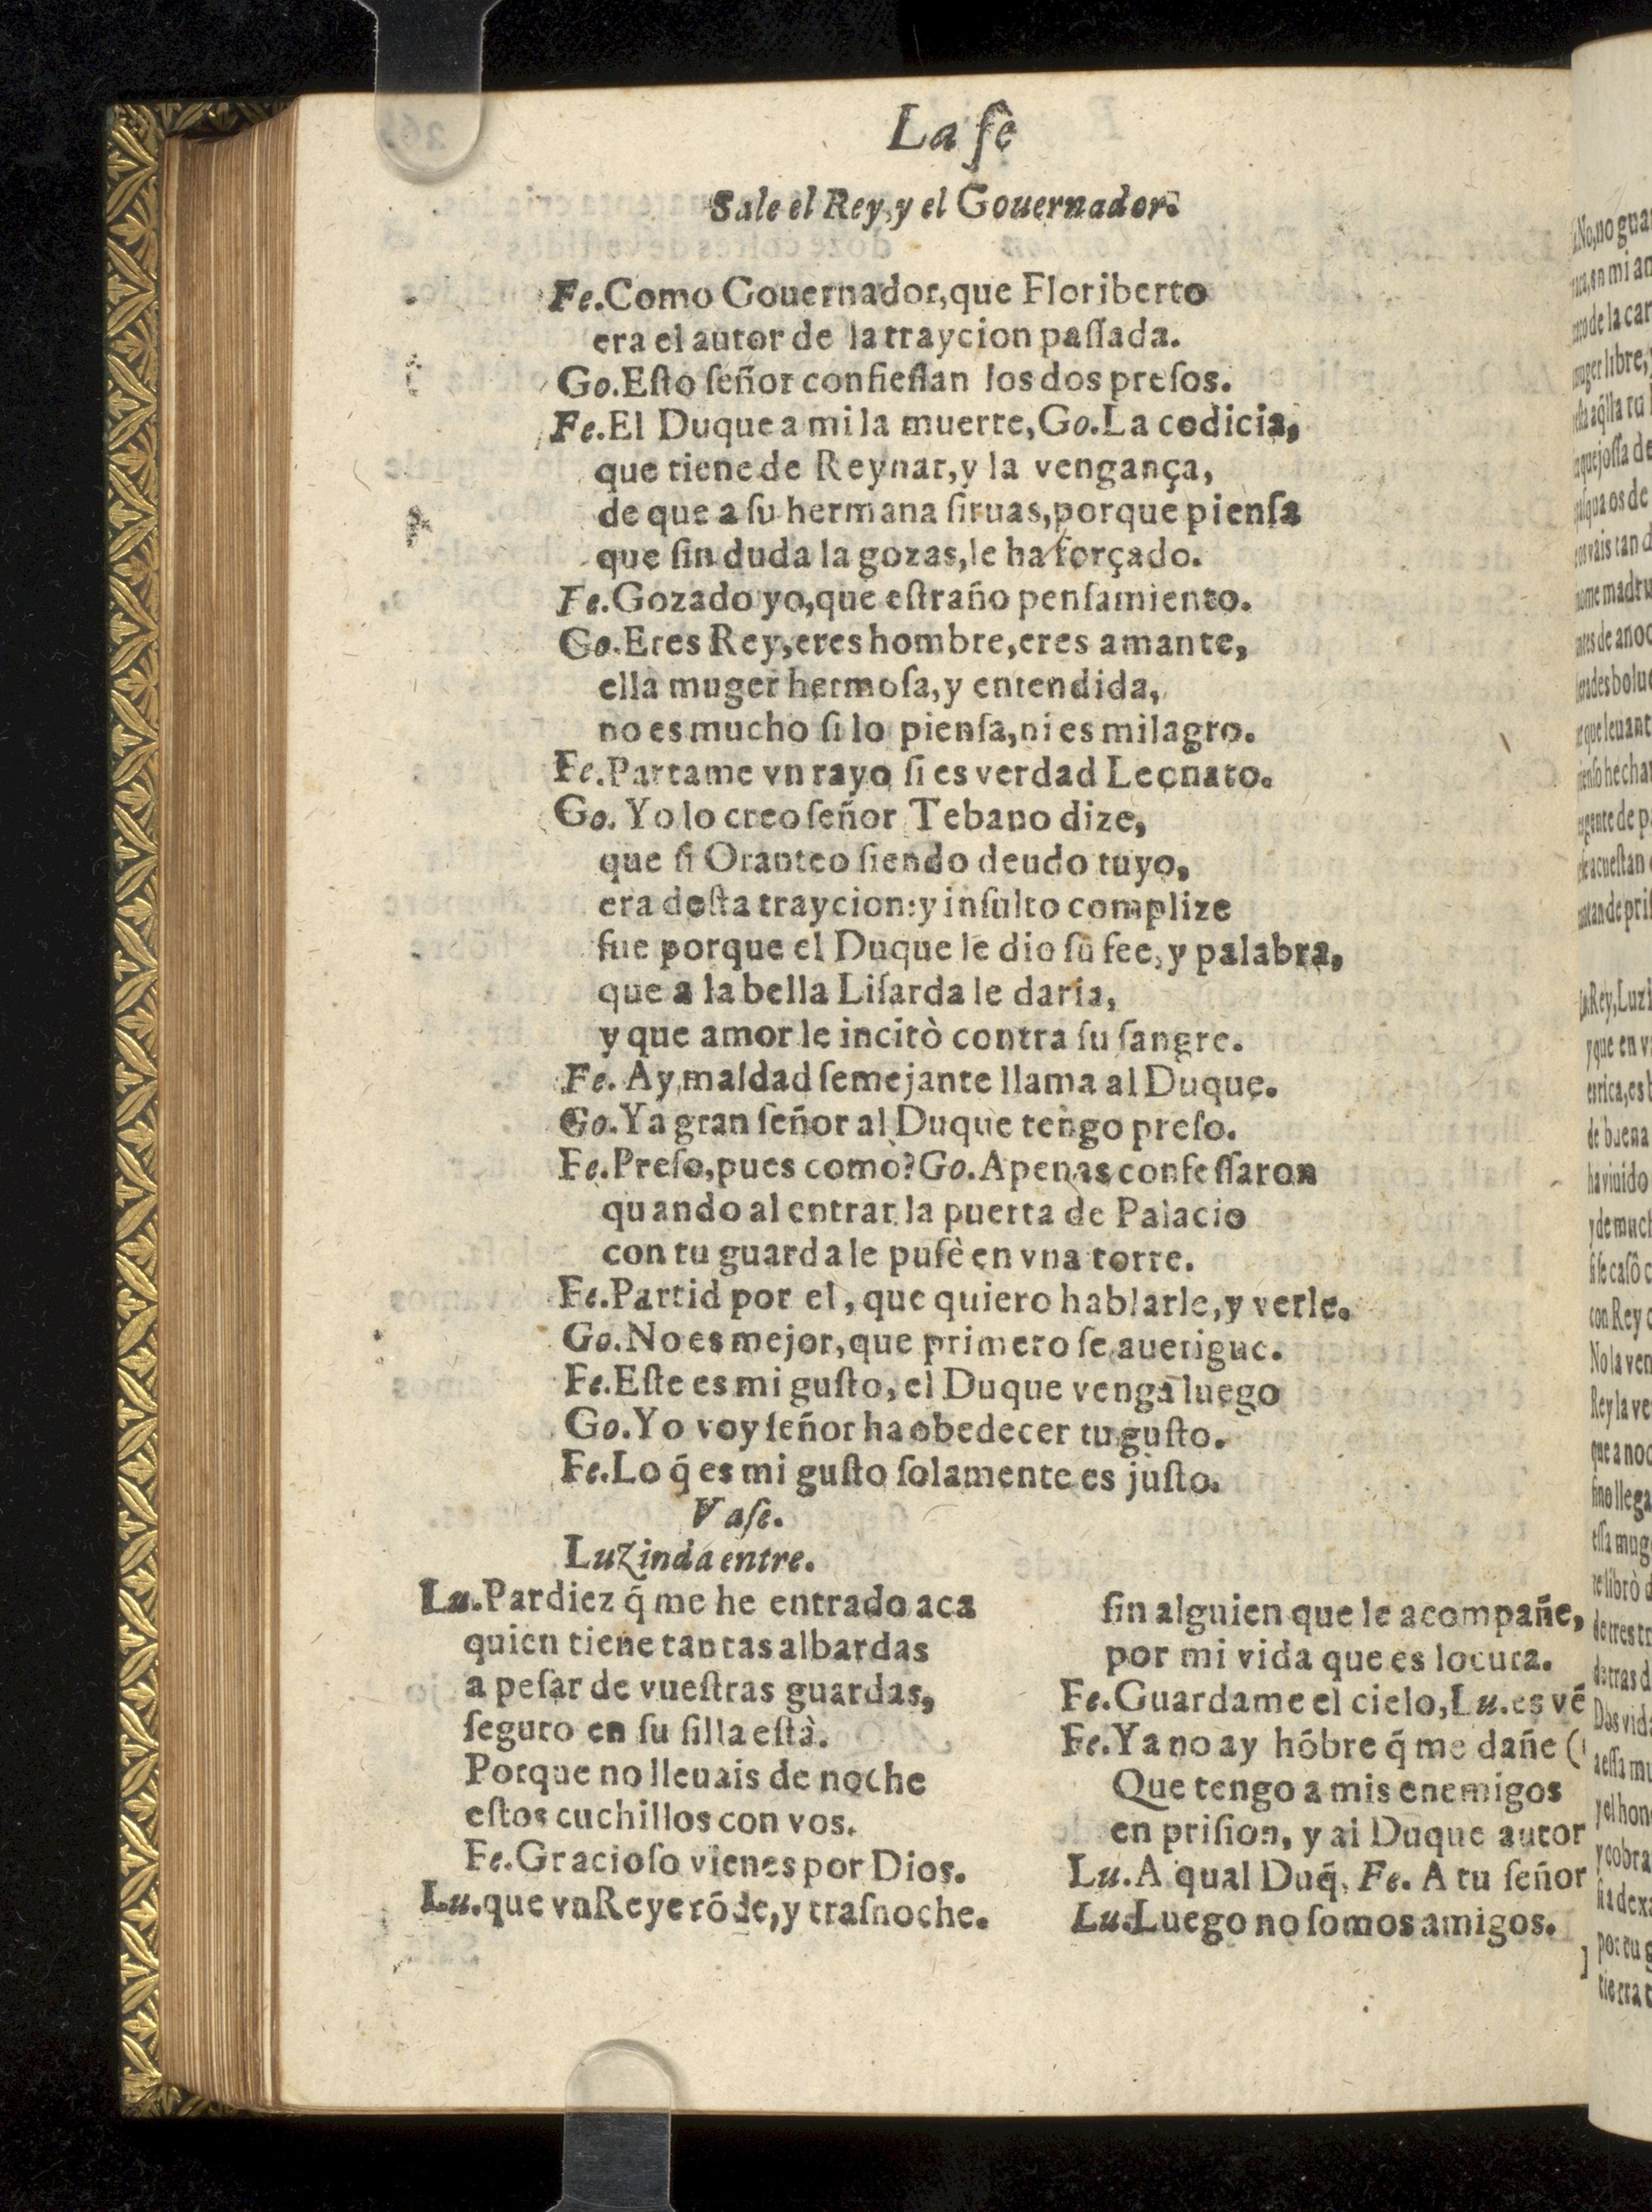 La fè
Sale el Rey, y el Gouernador.
Fe.Como Gouernador,que Floriberto
era el autor de la traycion paſſada.
Go.Eſto ſeñor confieſſan los dos preſos.
Fe.El Duque a mi la muerte,Go.La codicia,
que tiene de Reynar,y la vengança,
de que a ſu hermana ſiruas,porque pienſa
que ſin duda la gozas,le ha forçado.
Fe.Gozado yo,que eſtraño penſamiento.
Go.Eres Rey,eres hombre,eres amante,
ella muger hermoſa,y entendida,
no es mucho ſi lo pienſa,ni es milagro.
Fe.Partame vn rayo ſi es verdad Leonato.
Go. Yo lo creo ſeñor Tebano dize,
que ſi Oranteo ſiendo deudo tuyo,
era deſta traycion:y inſulto complize
fue porque el Duque le dio ſu fee,y palabra,
que a la bella Liſarda le daria,
y que amor le incitò contra ſu ſangre.
Fe. Ay maldad ſemejante llama al Duque.
Go.Ya gran ſeñor al Duque tengo preſo.
Fe.Preſo,pues como?Go.Apenas confeſſaron
quando al entrar la puerta de Palacio
con tu guarda le puſè en vna torre.
Fe.Partid por el, que quiero hablarle,y verle.
Go.No es mejor,que primero ſe auerigue.
Fe.Eſte es mi guſto, el Duque venga luego
Go.Yo voy ſeñor ha obedecer tu guſto.
Fe.Lo q̃ es mi guſto ſolamente es juſto.
Vaſe.
Luzinda entre.
Lu.Pardiez q̃ me he entrado aca
quien tiene tantas albardas
a peſar de vueſtras guardas,
ſeguro en ſu ſilla eſtà.
Porque no lleuais de noche
eſtos cuchillos con vos.
Fe.Gracioſo vienes por Dios.
Lu.que vn Rey e rõde,y traſnoche.
ſin alguien que le acompañe,
por mi vida que es locura.
Fe.Guardame el cielo,Lu.es vẽ
Fe.Ya no ay hõbre q̃ me dañe (
Que tengo a mis enemigos
en priſion, y al Duque autor
Lu.A qual Duq̃, Fe. A tu ſeñor
Lu.Luego no ſomos amigos.